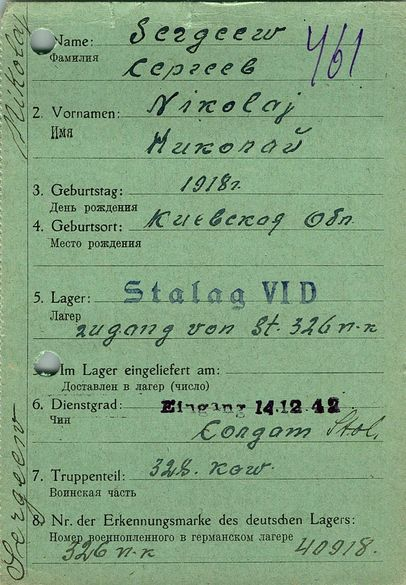 Name: Sergeew
Фамилия Сергеев
461
2. Vornamen: Nikolaj
Имя Николай
3. Geburtstag: 1918г.
День рождения
4. Geburtsort: Киевской Обл.
Место рождения
5. Lager: Stalag VI D
Лагерь
zugang von St. 326 п-к
Im Lager eingeliefert am:
Доставлен в лагер (число)
6. Dienstgrad: Eingang 14.12.42
Чин Солдат
7. Truppenteil: 328.
Воинская часть
8. Nr. der Erkennungsmarke des deutschen Lagers:
Номер военнопленного в германском лагере
326 п-к 40918.
Sergeew Nikolaj